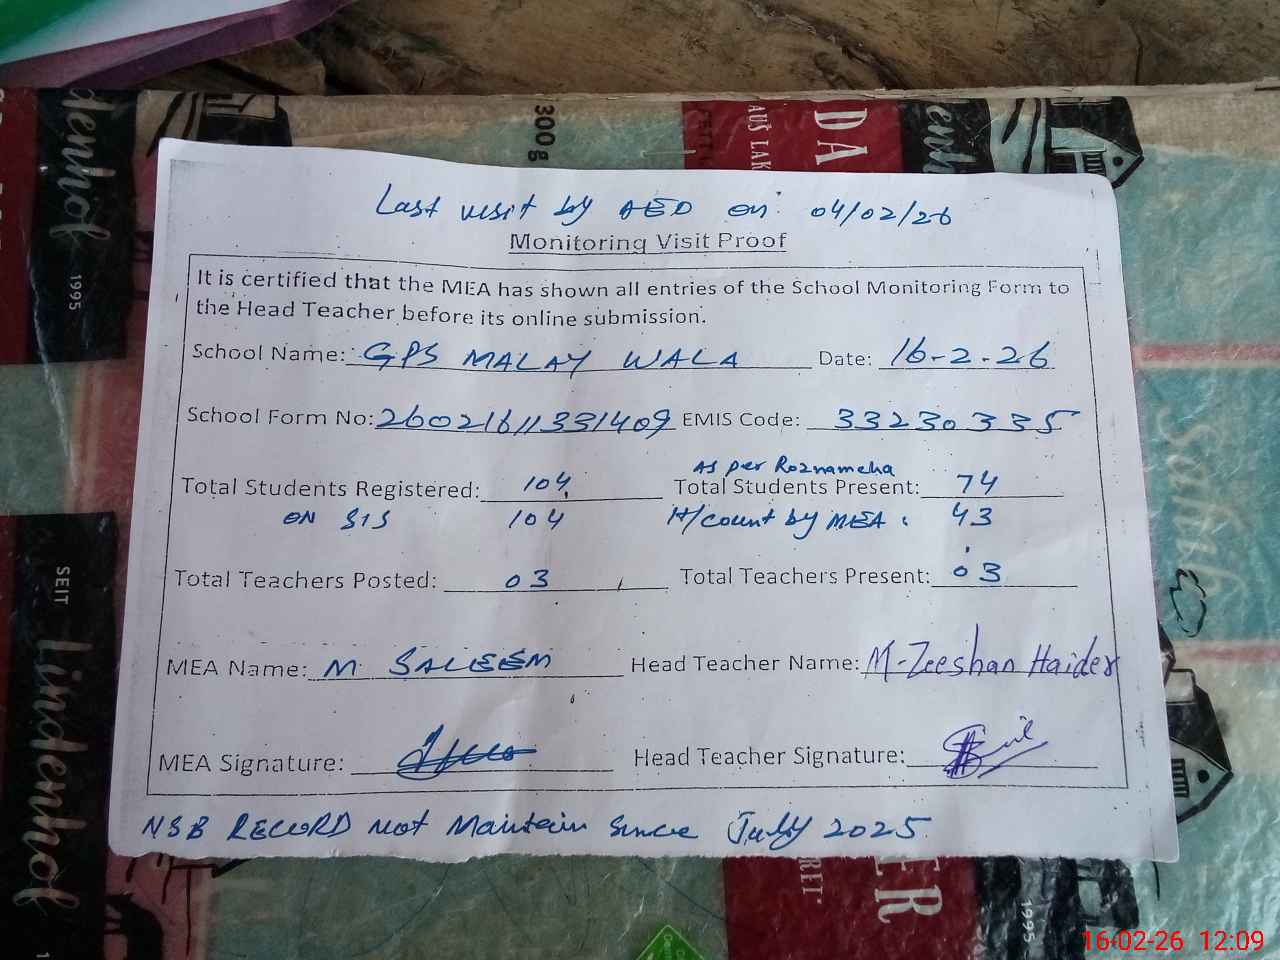 Last visit by AEO on 04/02/26
Monitoring Visit Proof
It is certified that the MEA has shown all entries of the School Monitoring Form to
the Head Teacher before its online submission.
School Name: GPS MALAY WALA Date: 16-2-26
School Form No: 26021611331409 EMIS Code: 33230335
As per Roznamcha
Total Students Registered: 104 Total Students Present: 74
ON SIS 104 H/count by MEA: 43
Total Teachers Posted: 03 Total Teachers Present: 03
MEA Name: M SALEEM Head Teacher Name: M-Zeeshan Haider
MEA Signature: Head Teacher Signature:
NSB RECORD not Maintain Since July 2025
denhol
1995
300g
DA
AUŠ LAK
SEIT
lindenhol
Saftih
ER
RET.
1995
16-02-26 12:09